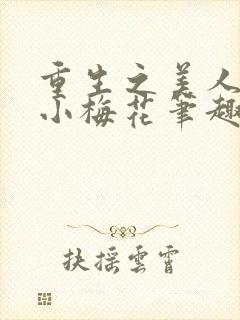 重生之美人
小梅花笔趣
扶摇雲霄